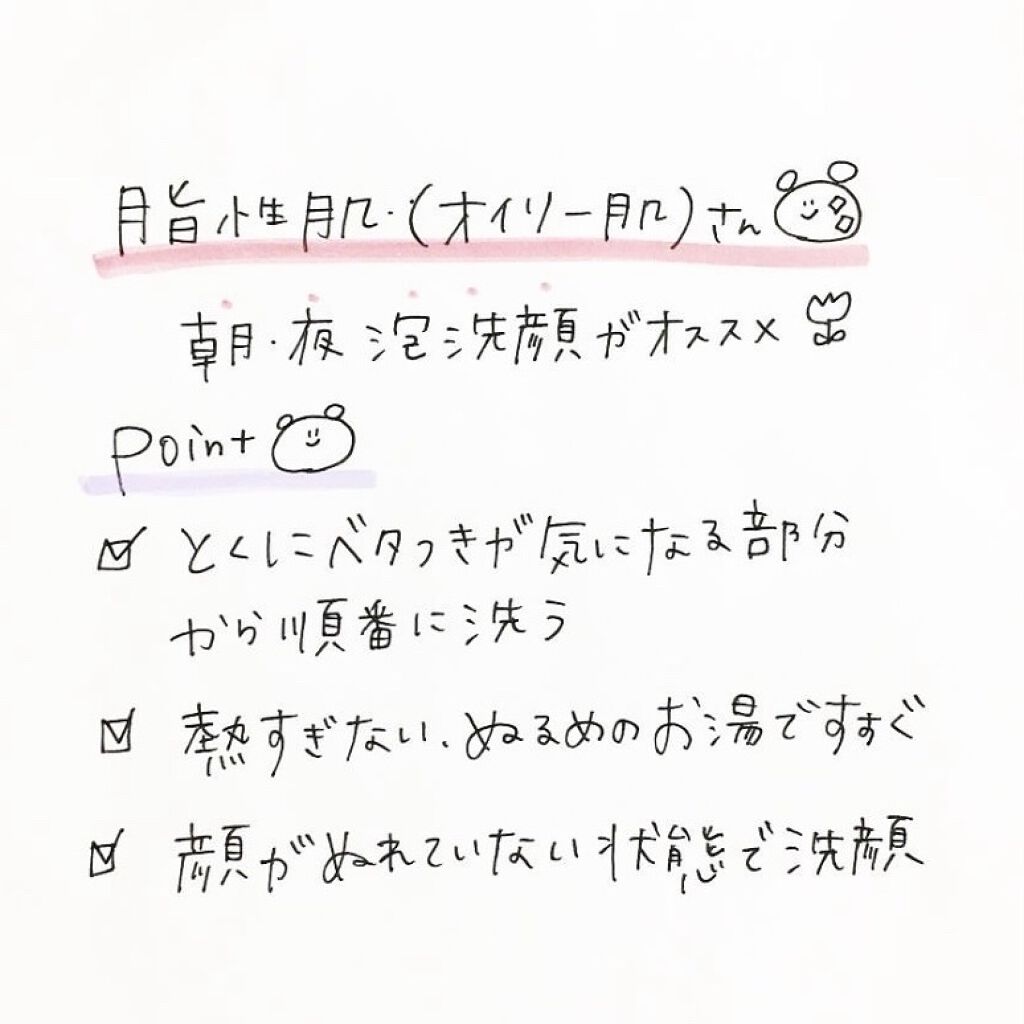 脂性肌・(オイリー肌)さん
朝・夜 泡洗顔がオススメ
Point
とくにベタつきが気になる部分
から順番に洗う
熱すぎない、ぬるめのお湯ですすぐ
顔がぬれていない状態で洗顔